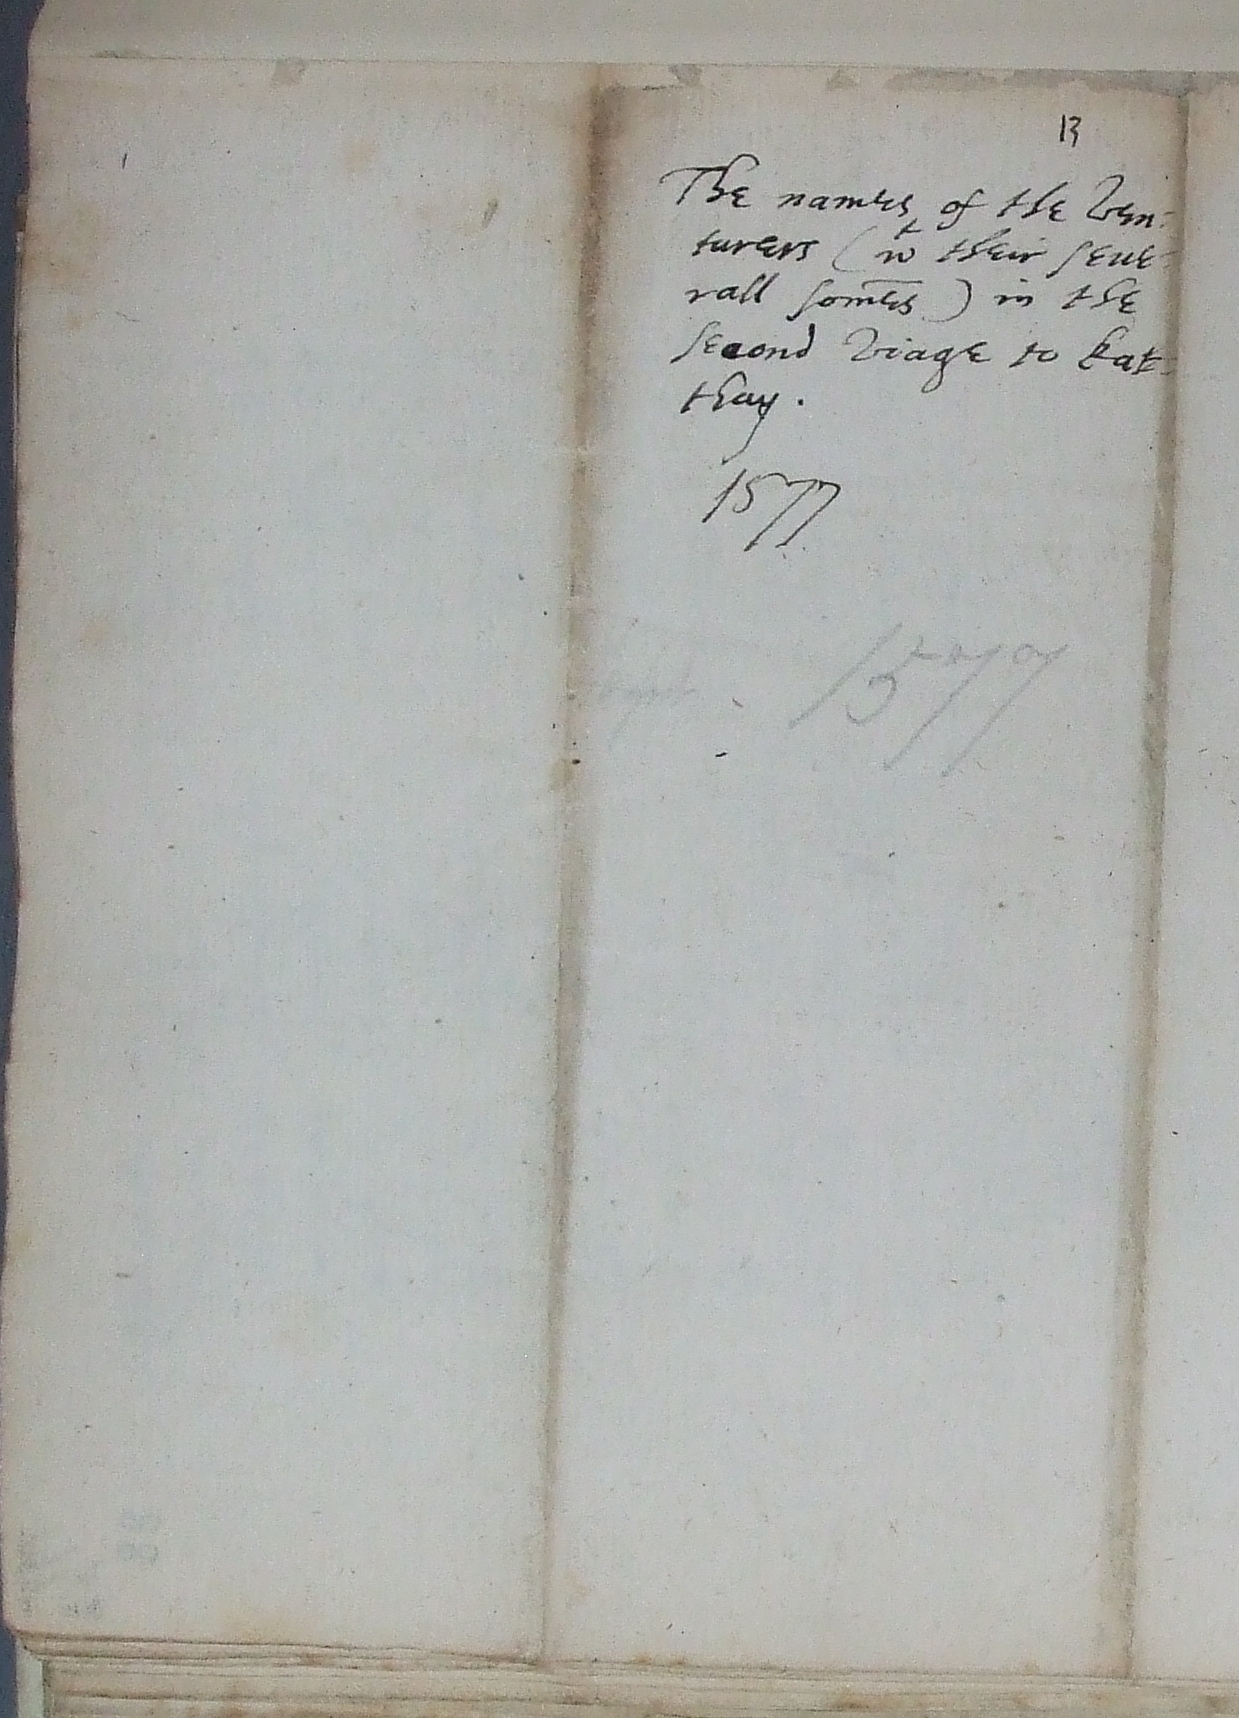 13
The names of the Ven:
turers (wt their seue-
rall somēs) in the
second viage to kat-
thay.
1577
1577